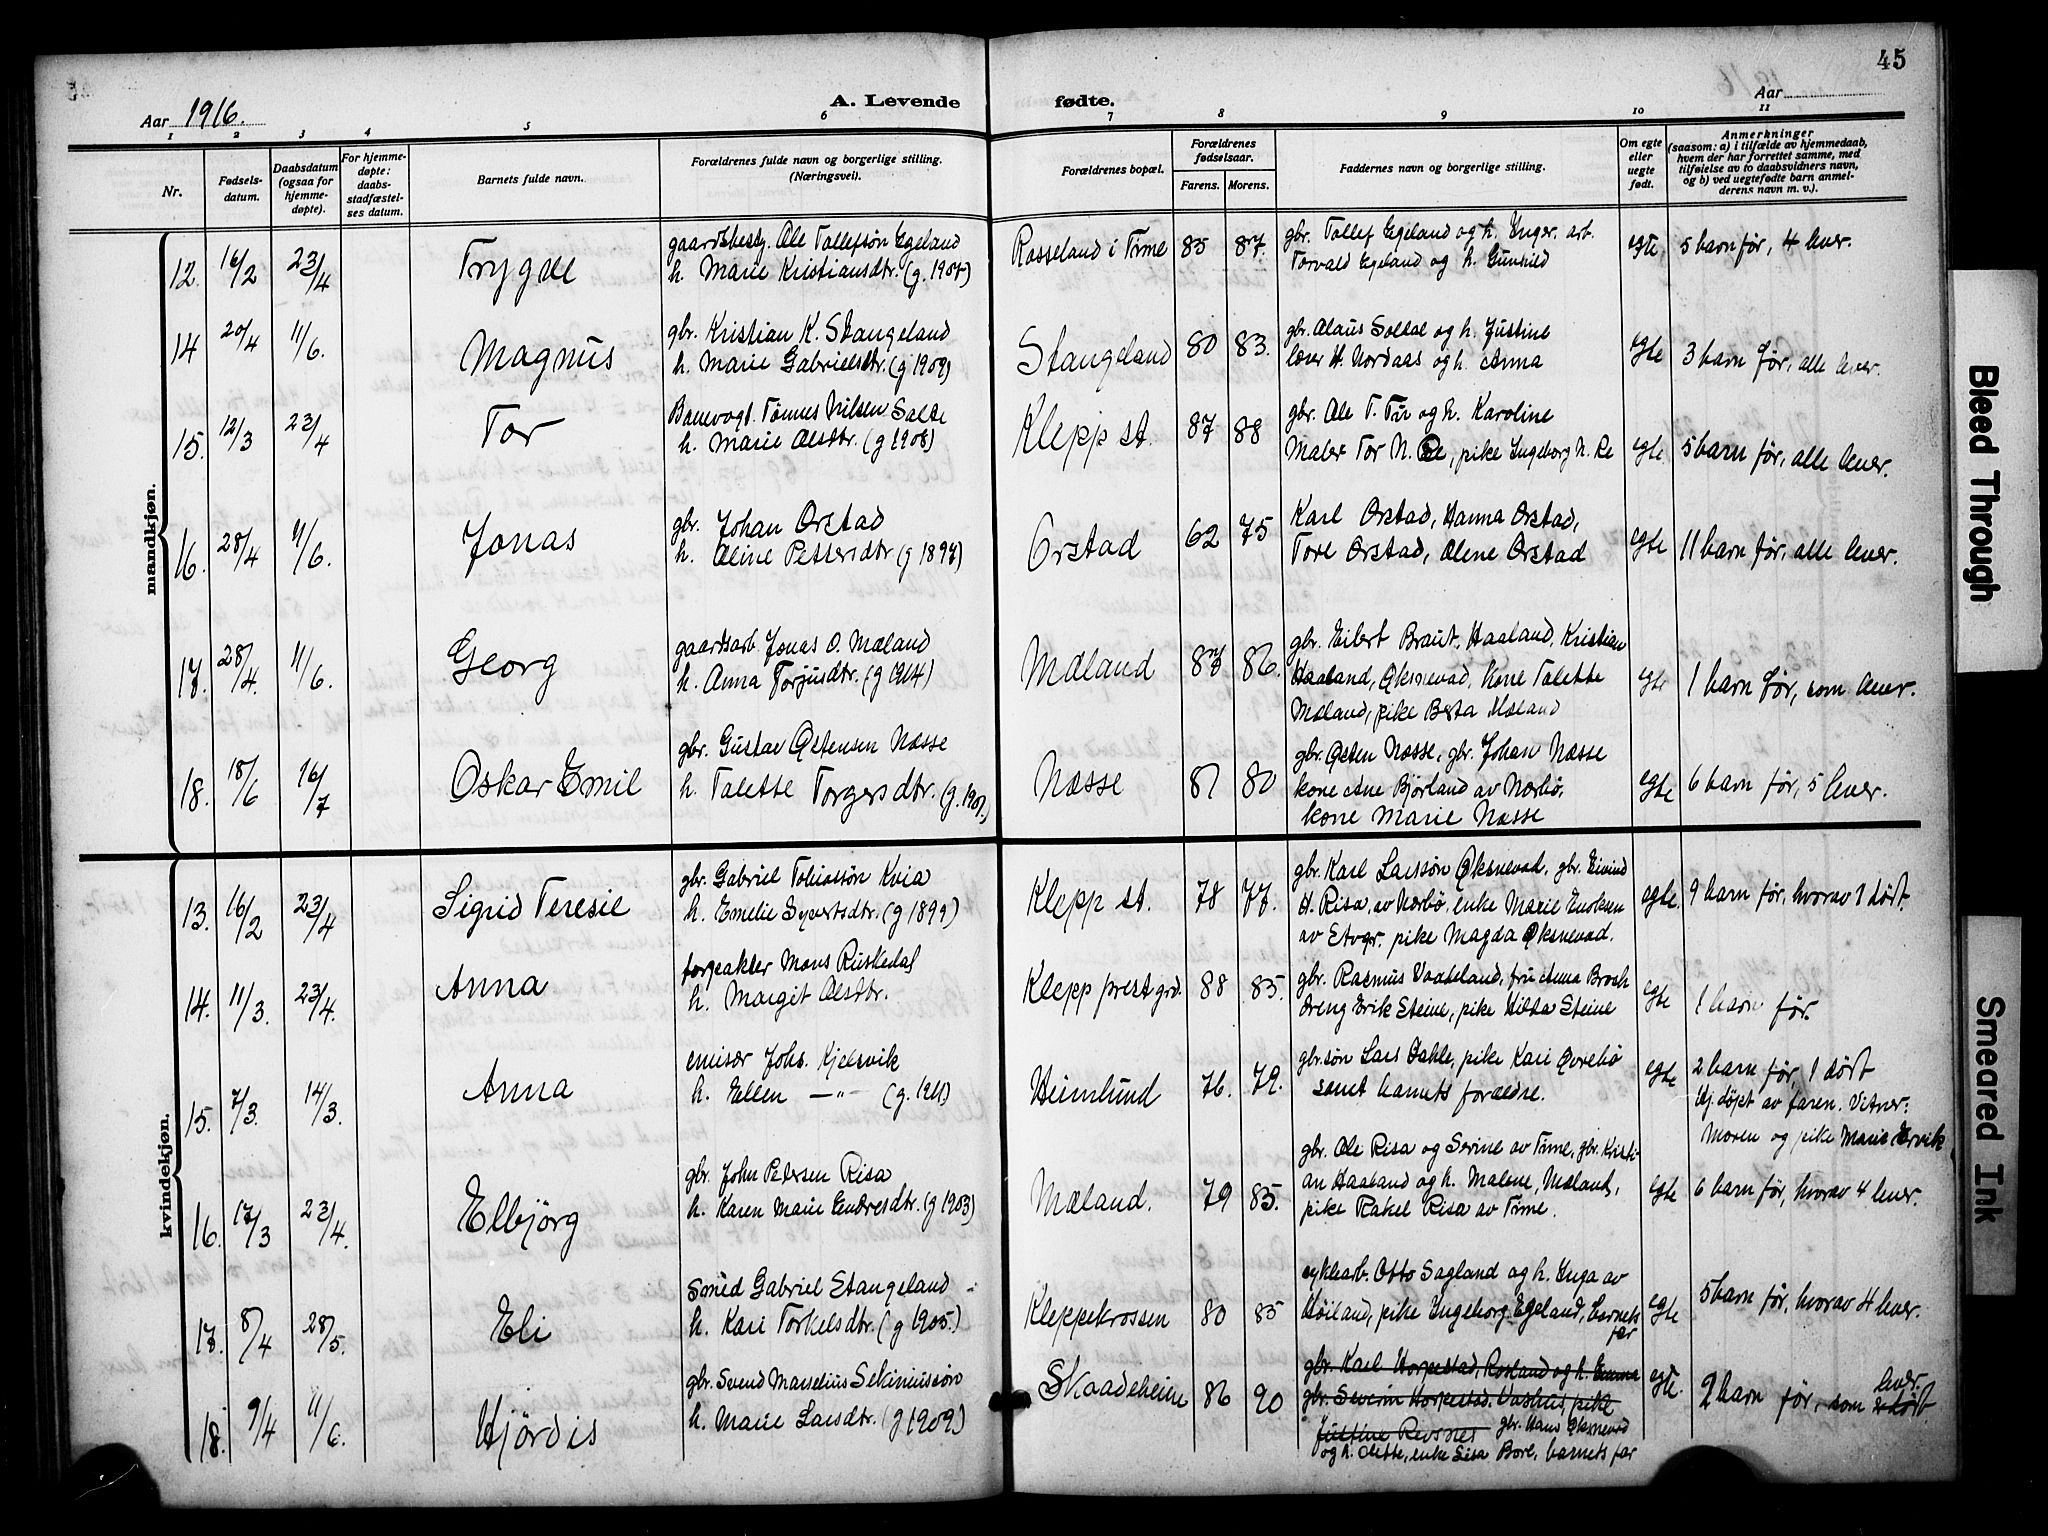 45
Aar 1916.
A. Levende fødte.
Aar
1 2 3 4 5 6 7 8 9 10 11
Nr.
Fødsels-
datum.
Daabsdatum
(ogsaa for
hjemme-
døpte).
For hjemme-
døpte:
daabs-
stadfæstel-
ses datum.
Barnets fulde navn.
Forældrenes fulde navn og borgerlige stilling.
(Næringsvei).
Forældrenes bopæl.
Forældrenes
fødselsaar.
Farens. Morens.
Faddernes navn og borgerlige stilling.
Om egte
eller
uegte
født.
Anmerkninger
(saasom: a) i tilfælde av hjemmedaab,
hvem der har forrettet samme, med
tilføielse av to daabsvidners navn,
og b) ved uegtefødte barn anmel-
derens navn m. v.).
mandkjøn.
12. 16/2 23/4 Trygve
gaardsbest. Ole Tollefsøn Egeland
h. Marie Kristiansdtr. (g. 1907)
Rosseland i Time 85 87.
gbr. Tollef Egeland og h. Inger. arb.
Torvald Egeland og h. Gunhild
egte 5 barn før, 4 lever.
14 20/4 11/6. Magnus
gbr. Kristian K. Stangeland
h. Marie Gabrielsdtr. (g 1909)
Stangeland 80 83.
gbr. Olaus Soldal og h. Justine
lærer H. Nordaas og h. Anna
egte 3 barn før, alle lever.
15. 12/3 23/4 Tor
Banevogt. Tønnes Nilsen Salte
h. Marie Olsdtr. (g 1908)
Klepp st. 87 88
gbr. Ole T. Tu og h. Karoline
Maler Tor N. Re, pike Ingeborg N. Re
egte 5 barn før, alle lever.
16. 28/4 11/6. Jonas
gbr. Johan Orstad
h. Oline Pettersdtr (g 1897)
Orstad 62 75
Karl Orstad, Hanna Orstad,
Tore Orstad, Olene Orstad
egte 11 barn før, alle lever.
17. 28/4. 11/6. Georg
gaardsarb. Jonas O. Mæland
h. Anna Torjusdtr. (g 1914)
Mæland 87 86.
gbr. Eilert Braut, Haaland, Kristian
Haaland, Øksnevad, kone Talette
Mæland, pike Berta Mæland
egte 1 barn før, som lever.
18. 18/6 16/7 Oskar Emil
gbr. Gustav Østensen Næsse
h. Talette Torgersdtr. (g. 1907.)
Næsse 81 80
gbr. Østen Næsse, gbr. Johan Næsse
kone Ane Bjorland av Nærbø,
kone Marie Næsse
egte 6 barn før, 5 lever.
kvindekjøn.
13. 16/2 23/4 Sigrid Teresie
gbr. Gabriel Tobiassøn Kvia
h. Emelie Syvertsdtr. (g 1899)
Klepp st. 78 77.
gbr. Karl Larssøn Øksnevad, gbr. Eivind
H. Risa, av Nærbø, enke Marie Enoksen
av Stvgr. pike Magda Øksnevad.
egte. 9 barn før, hvorav 1 dødt.
14. 11/3. 23/4. Anna
forpakter Mons Ruskedal
h. Margit Olsdtr.
Klepp prestgrd. 88 85.
gbr. Rasmus Vaateland, fru Anna Broch
dreng Erik Steine, pike Hilda Steine
egte 1 barn før.
15. 7/3. 14/3. Anna
emisær Johs. Kjelsvik
h. Ellen —"— (g. 1911)
Heimlund 76. 79.
gbr.søn Lars Dahle, pike Kari Øvrebø
samt barnets forældre.
egte 2 barn før, 1 dødt
Hj.døpt av faren. Vitner:
Moren og pike Marie Ervik
16. 17/3 23/4. Elbjörg
gbr. John Petersen Risa
h. Karen Marie Endresdtr. (g 1903)
Mæland. 79 85.
gbr. Ole Risa og Serine av Time, gbr. Kristi-
an Haaland og h. Malene, Mæland,
pike Rakel Risa av Time.
egte 6 barn før, hvorav 4 lever.
17. 8/4 28/5. Eli
Smed Gabriel Stangeland
h. Kari Torkelsdtr. (g 1905.)
Kleppekrossen 80 85
cyklearb. Otto Sagland og h. Inga av
Høiland, pike Ingeborg Egeland, barnets
far
egte 5 barn før, hvorav 4 lever.
18. 9/4 11/6. Hjördis
gbr. Svend Marselius Sekiniussön
h. Marie Larsdtr. (g 1909)
Skaadeheien 86 90
gbr. Karl Horpestad, Rosland og h. Emma
gbr. Severin Horpestad, Vashus, pike
Justine Revsnes gbr. Hans Øksnevad
og h. Olette, enke Lisa Bore, barnets far
egte. 2 barn før, som er dødt
lever.
Bleed Through
Smeared Ink